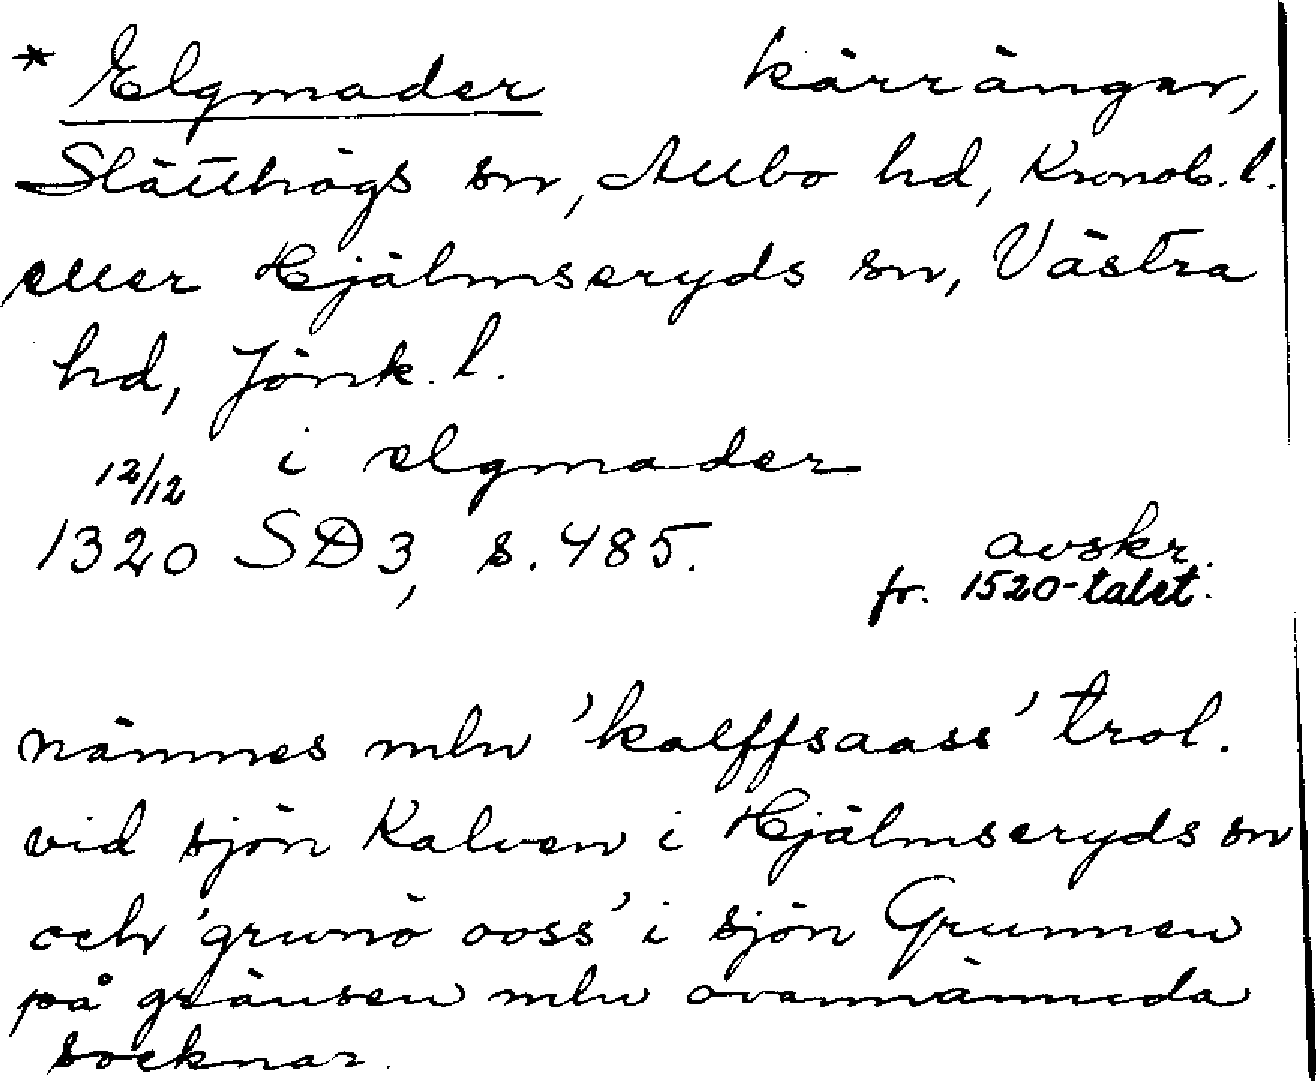 * Elgmader kärrängar,
Slätthögs sn, Allbo hd, Kronob. l.
eller Hjälmseryds sn, Västra
hd, Jönk. l.
12/12 i elgmader
1320 SD 3, s. 485. avskr.
fr. 1520-talet.
nämnes mln 'kalffsaass' trol.
vid sjön Kalven i Hjälmseryds sn
och 'grunö ooss' i sjön Grunnen
på gränsen mln ovannämnda
socknar.